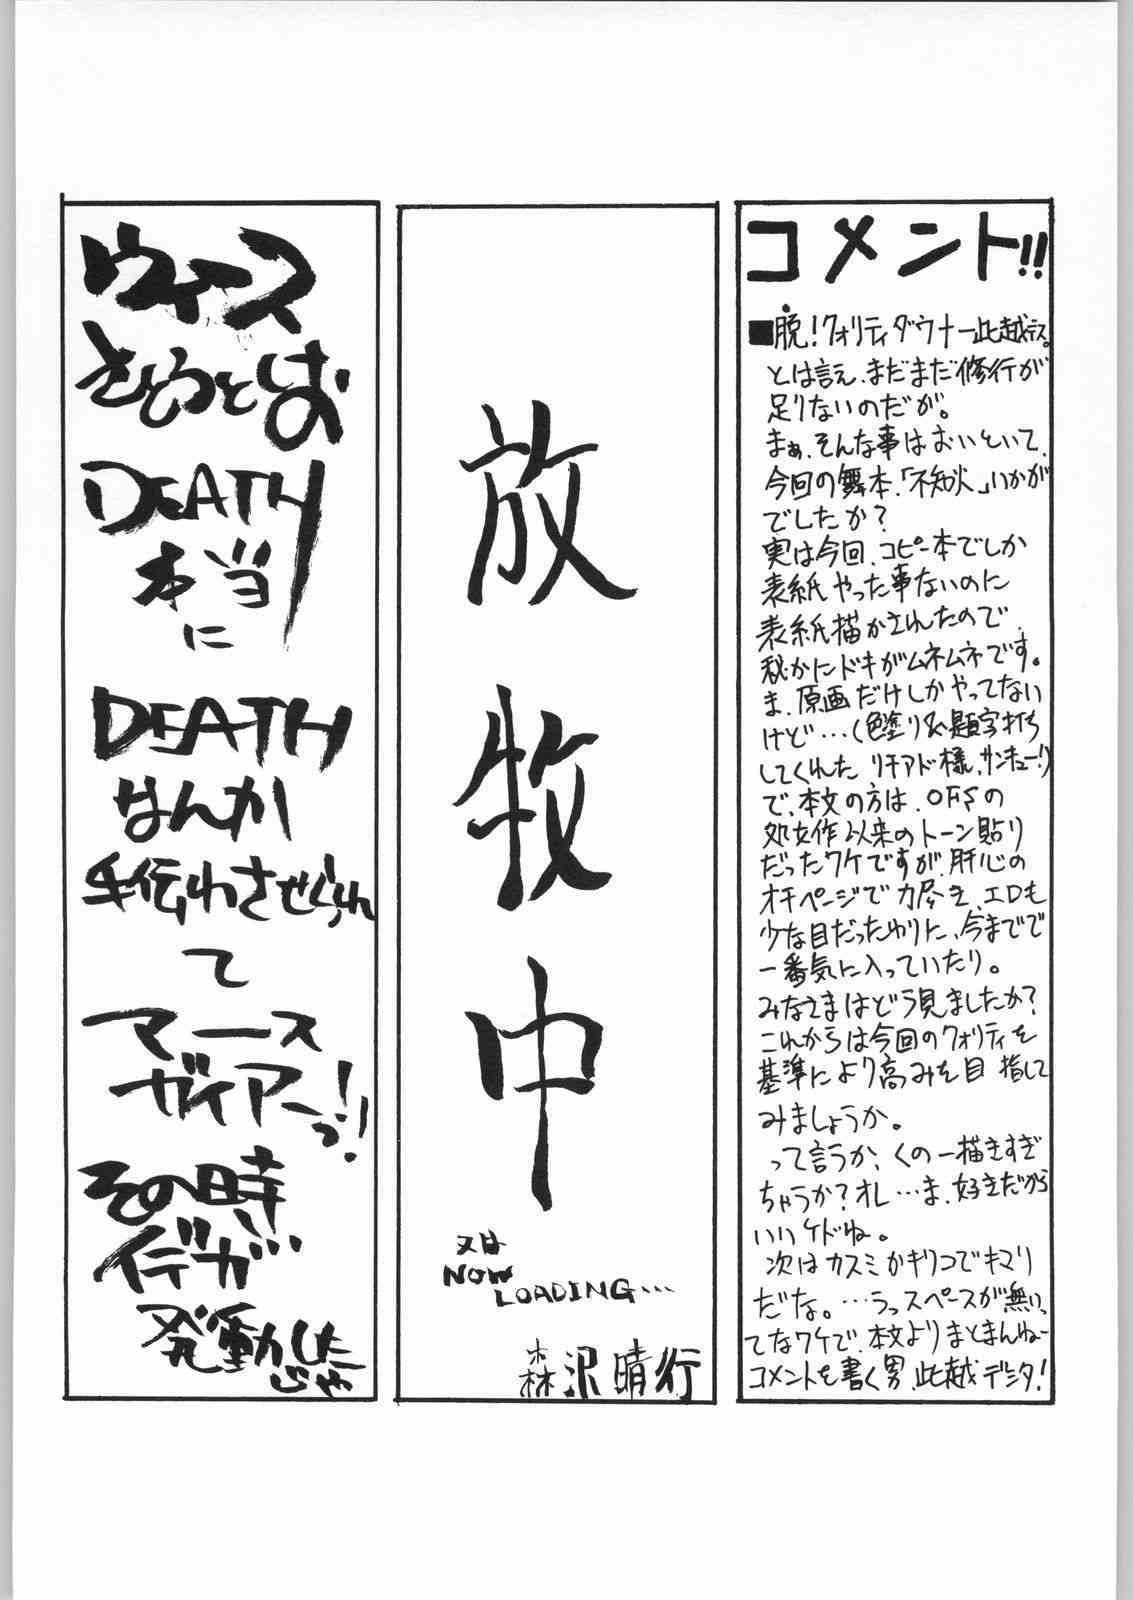 コメント!!
■脱!クォリティダウナー此越デス。
とは言え、まだまだ修行が
足りないのだが。
まぁ、そんな事はおいといて、
今回の舞本、「不知火」いかが
でしたか?
実は今回、コピー本でしか
表紙やった事ないのに
表紙描かされたので、
秘かにドキがムネムネです。
ま、原画だけしかやってない
けど…(色塗り&題字打ち
してくれた リチアド様、サンキュー!)
で、本文の方は、OFSの
処女作以来のトーン貼り
だったワケですが、肝心の
オチページで力尽き、エロも
少な目だったわりに、今までで
一番気に入っていたり。
みなさまはどう見ましたか?
これからは今回のクォリティを
基準により高みを目指して
みましょうか。
って言うか、くの一描きすぎ
ちゃうか?オレ…ま、好きだから
いいケドね。
次はカスミかキリコでキマリ
だな。…うっスペースが無いっ
てなワケで、本文よりまとまんねー
コメントを書く男、此越デジタ!
放牧中
又は
NOW
LOADING...
森沢晴行
ウィース
さとうとしお
DEATH
本当
に
DEATH
なんか
手伝わさせくられ
て
マース
ガイアーっ!!
その時
イデが…
発動した
じゃ